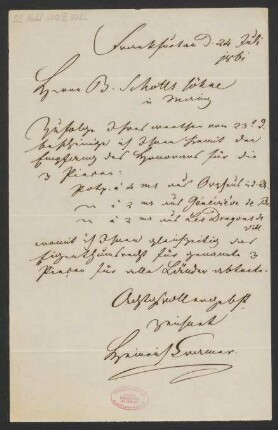 Frankfurt am d. 24 Juli
1861
Herrn B. Schotts Söhne
in Mainz
Zufolge Ihres werthen vom 23 d.
bescheinige ich Ihnen hiermit den
Empfang des Honorars für die
3 Piecen:
Potp. à 4 ms aus Orphée
" à 2 ms aus Geneviève de
" à 2 ms aus Les Dragons de
Vill.
womit ich Ihnen gleichzeitig das
Eigenthumsrecht für genannte 3
Piecen für alle Länder abtrete.
Achtungsvoll ergebst
zeichnet
Heinrich Cramer